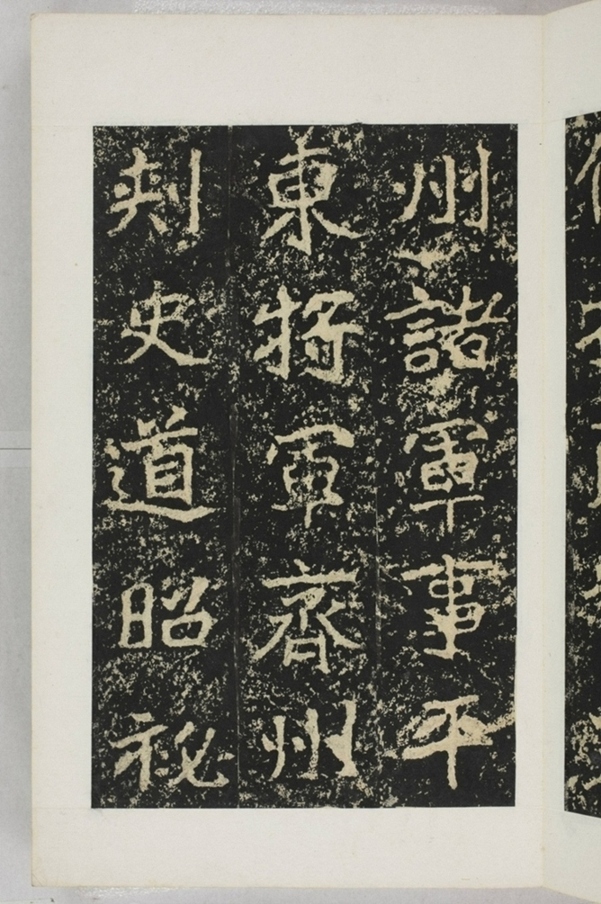 州諸軍事平
東將軍齊州
刺史道昭祕